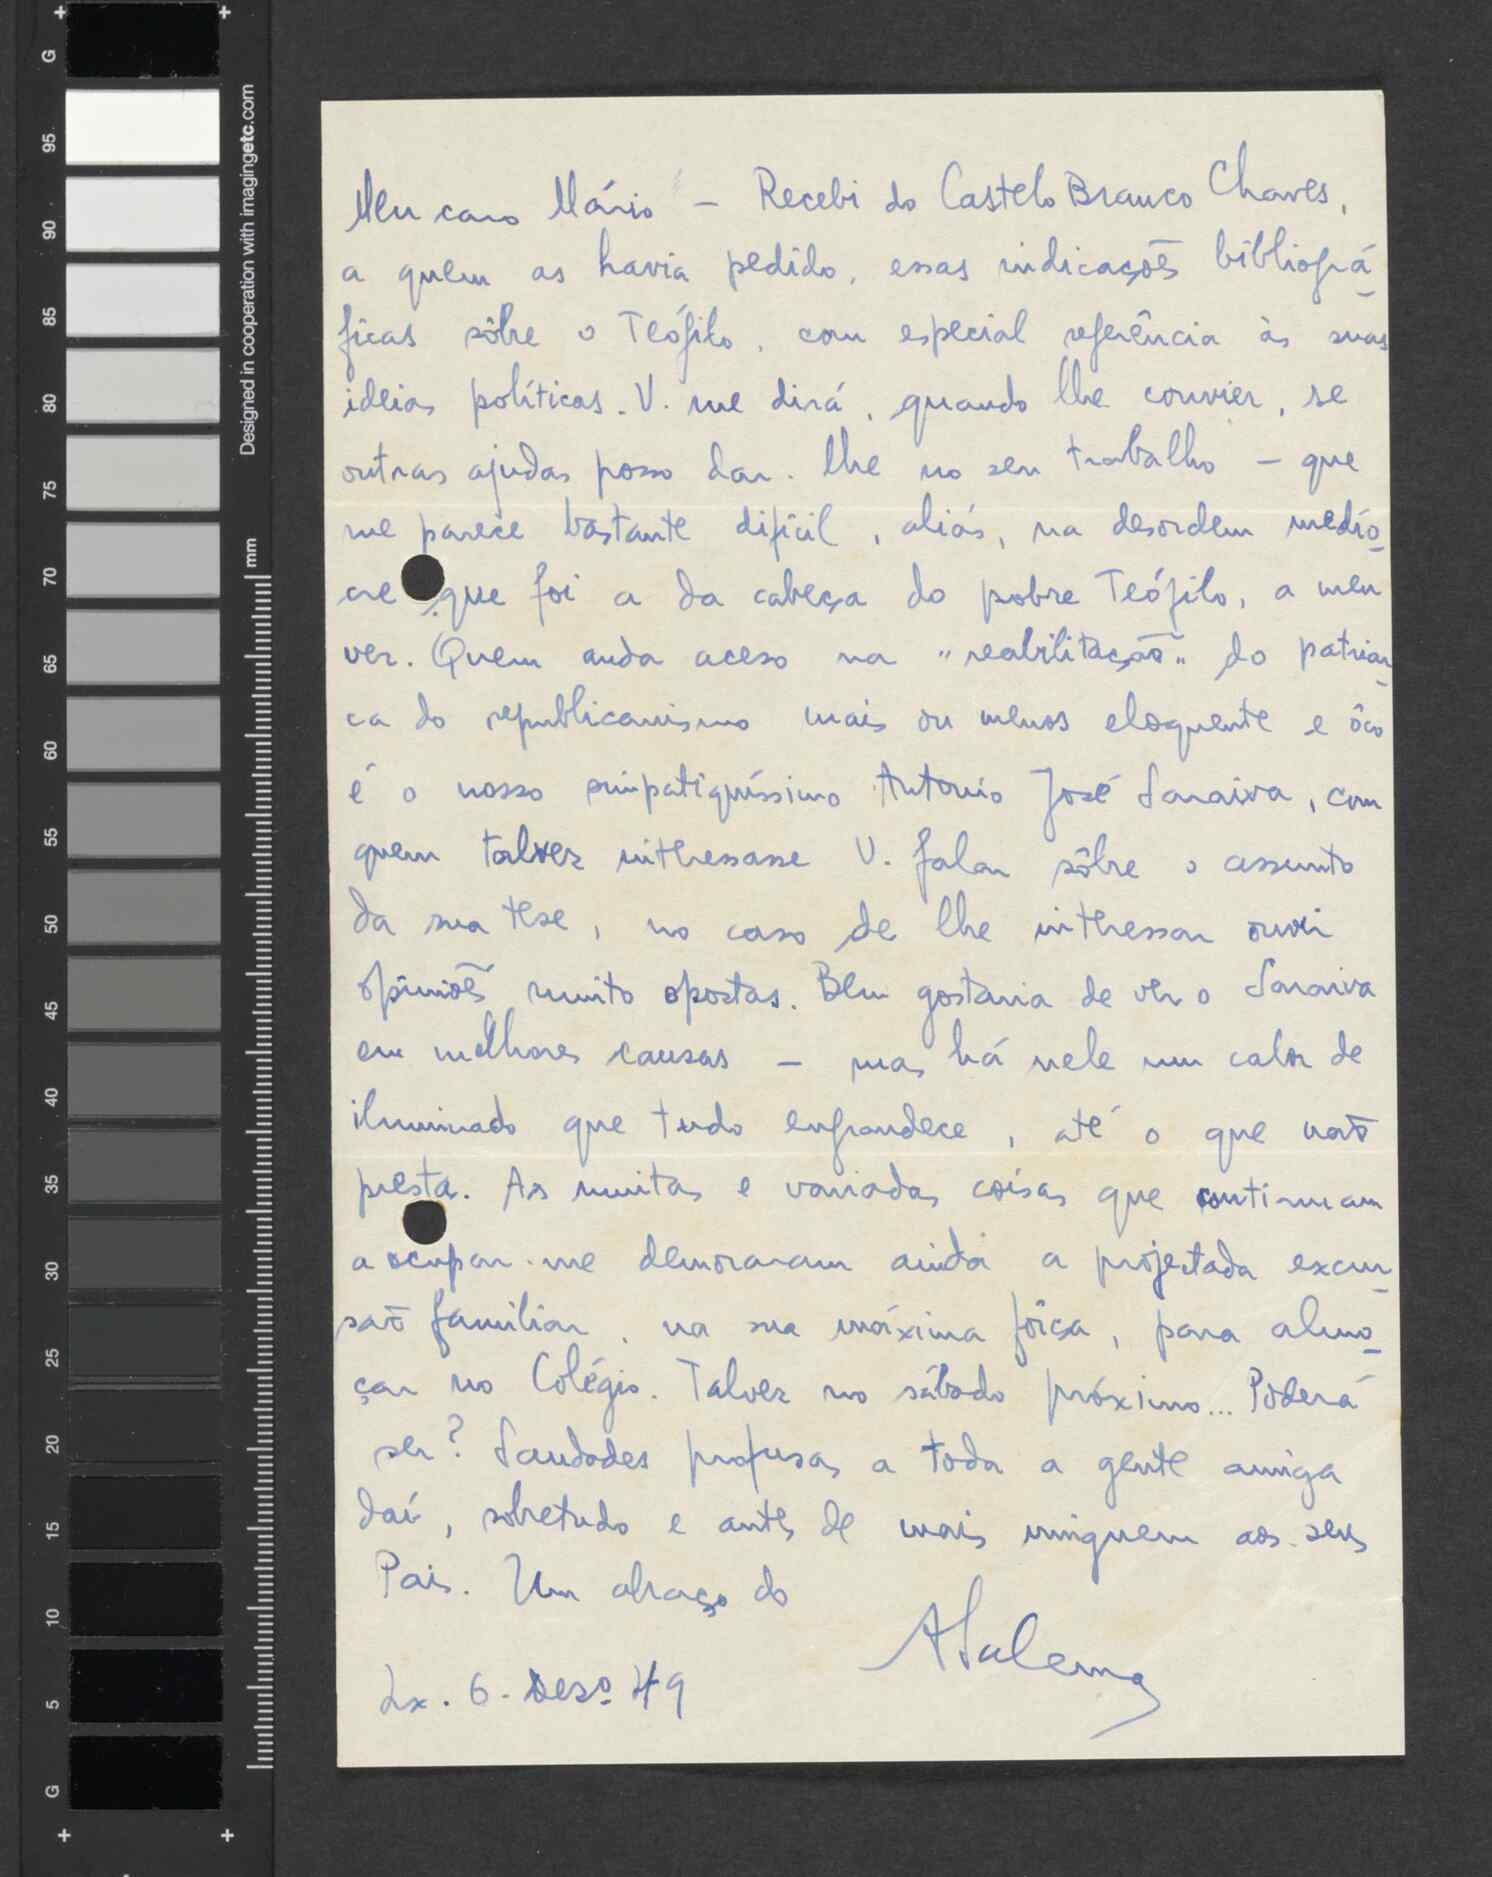 Meu caro Mário — Recebi do Castelo Branco Chaves,
a quem as havia pedido, essas indicações bibliográ-
ficas sôbre o Teófilo, com especial referência às suas
ideias políticas. V. me dirá, quando lhe convier, se
outras ajudas posso dar-lhe no seu trabalho — que
me parece bastante difícil, aliás, na desordem medío-
cre que foi a da cabeça do pobre Teófilo, a meu
ver. Quem anda aceso na "reabilitação" do patriar-
ca do republicanismo mais ou menos eloquente e ôco
é o nosso simpatiquíssimo Antonio José Saraiva, com
quem talvez interessasse V. falar sôbre o assunto
da sua tese, no caso de lhe interessar ouvir
opiniões muito opostas. Bem gostaria de ver o Saraiva
em melhores causas — mas há nele um calor de
iluminado que tudo engrandece, até o que não
presta. As muitas e variadas coisas que continuam
a ocupar-me demoraram ainda a projectada excur-
são familiar, na sua máxima fôrça, para almo-
çar no Colégio. Talvez no sábado próximo... Poderá
ser? Saudades profusas a toda a gente amiga
daí, sobretudo e antes de mais ninguem aos seus
Pais. Um abraço do
ASalema
Lx. 6-Dezº 49
Designed in cooperation with imagingetc.com
mm
G
95
90
85
80
75
70
65
60
55
50
45
40
35
30
25
20
15
10
5
G